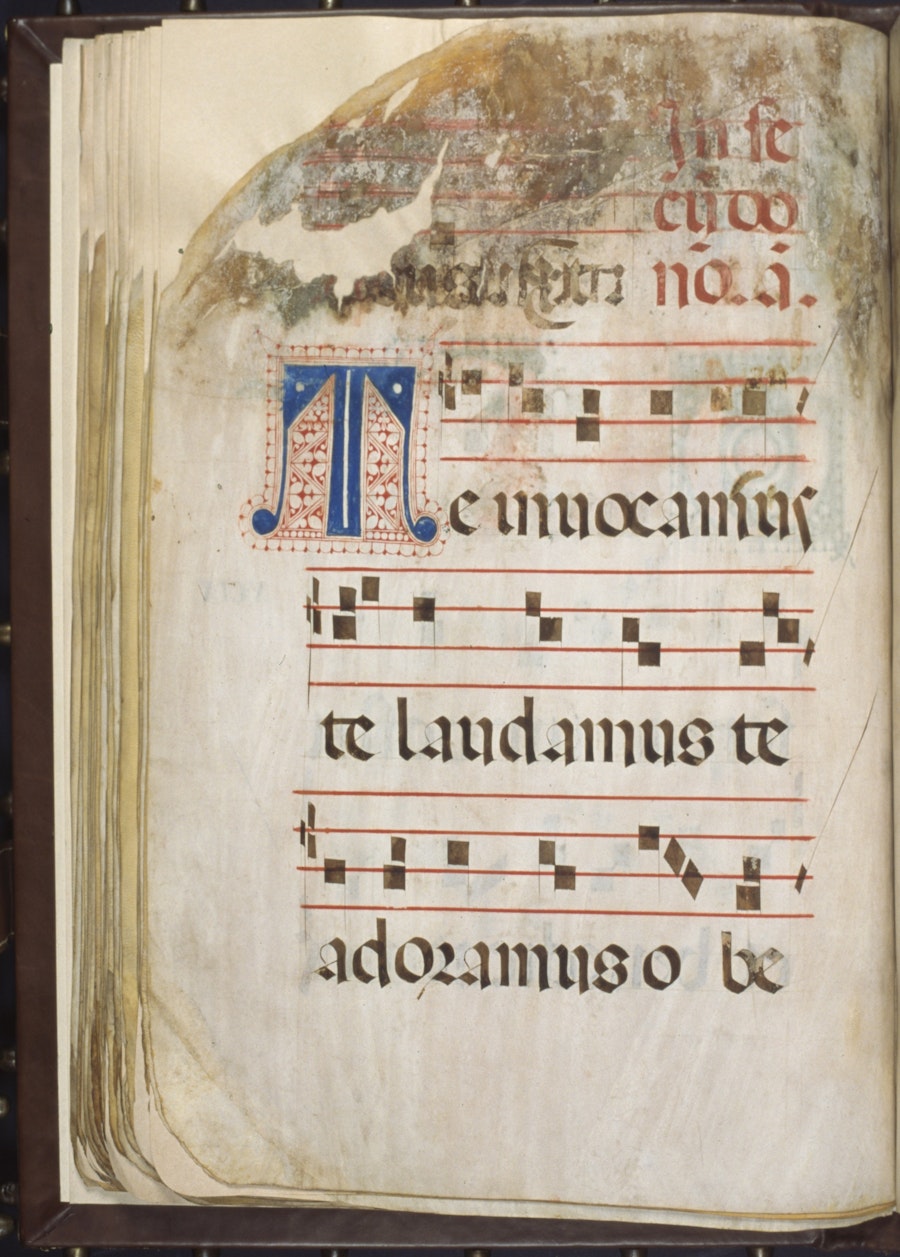 In se
cūdo
nō. ā.
Te inuocamus
te laudamus te
adoramus o be